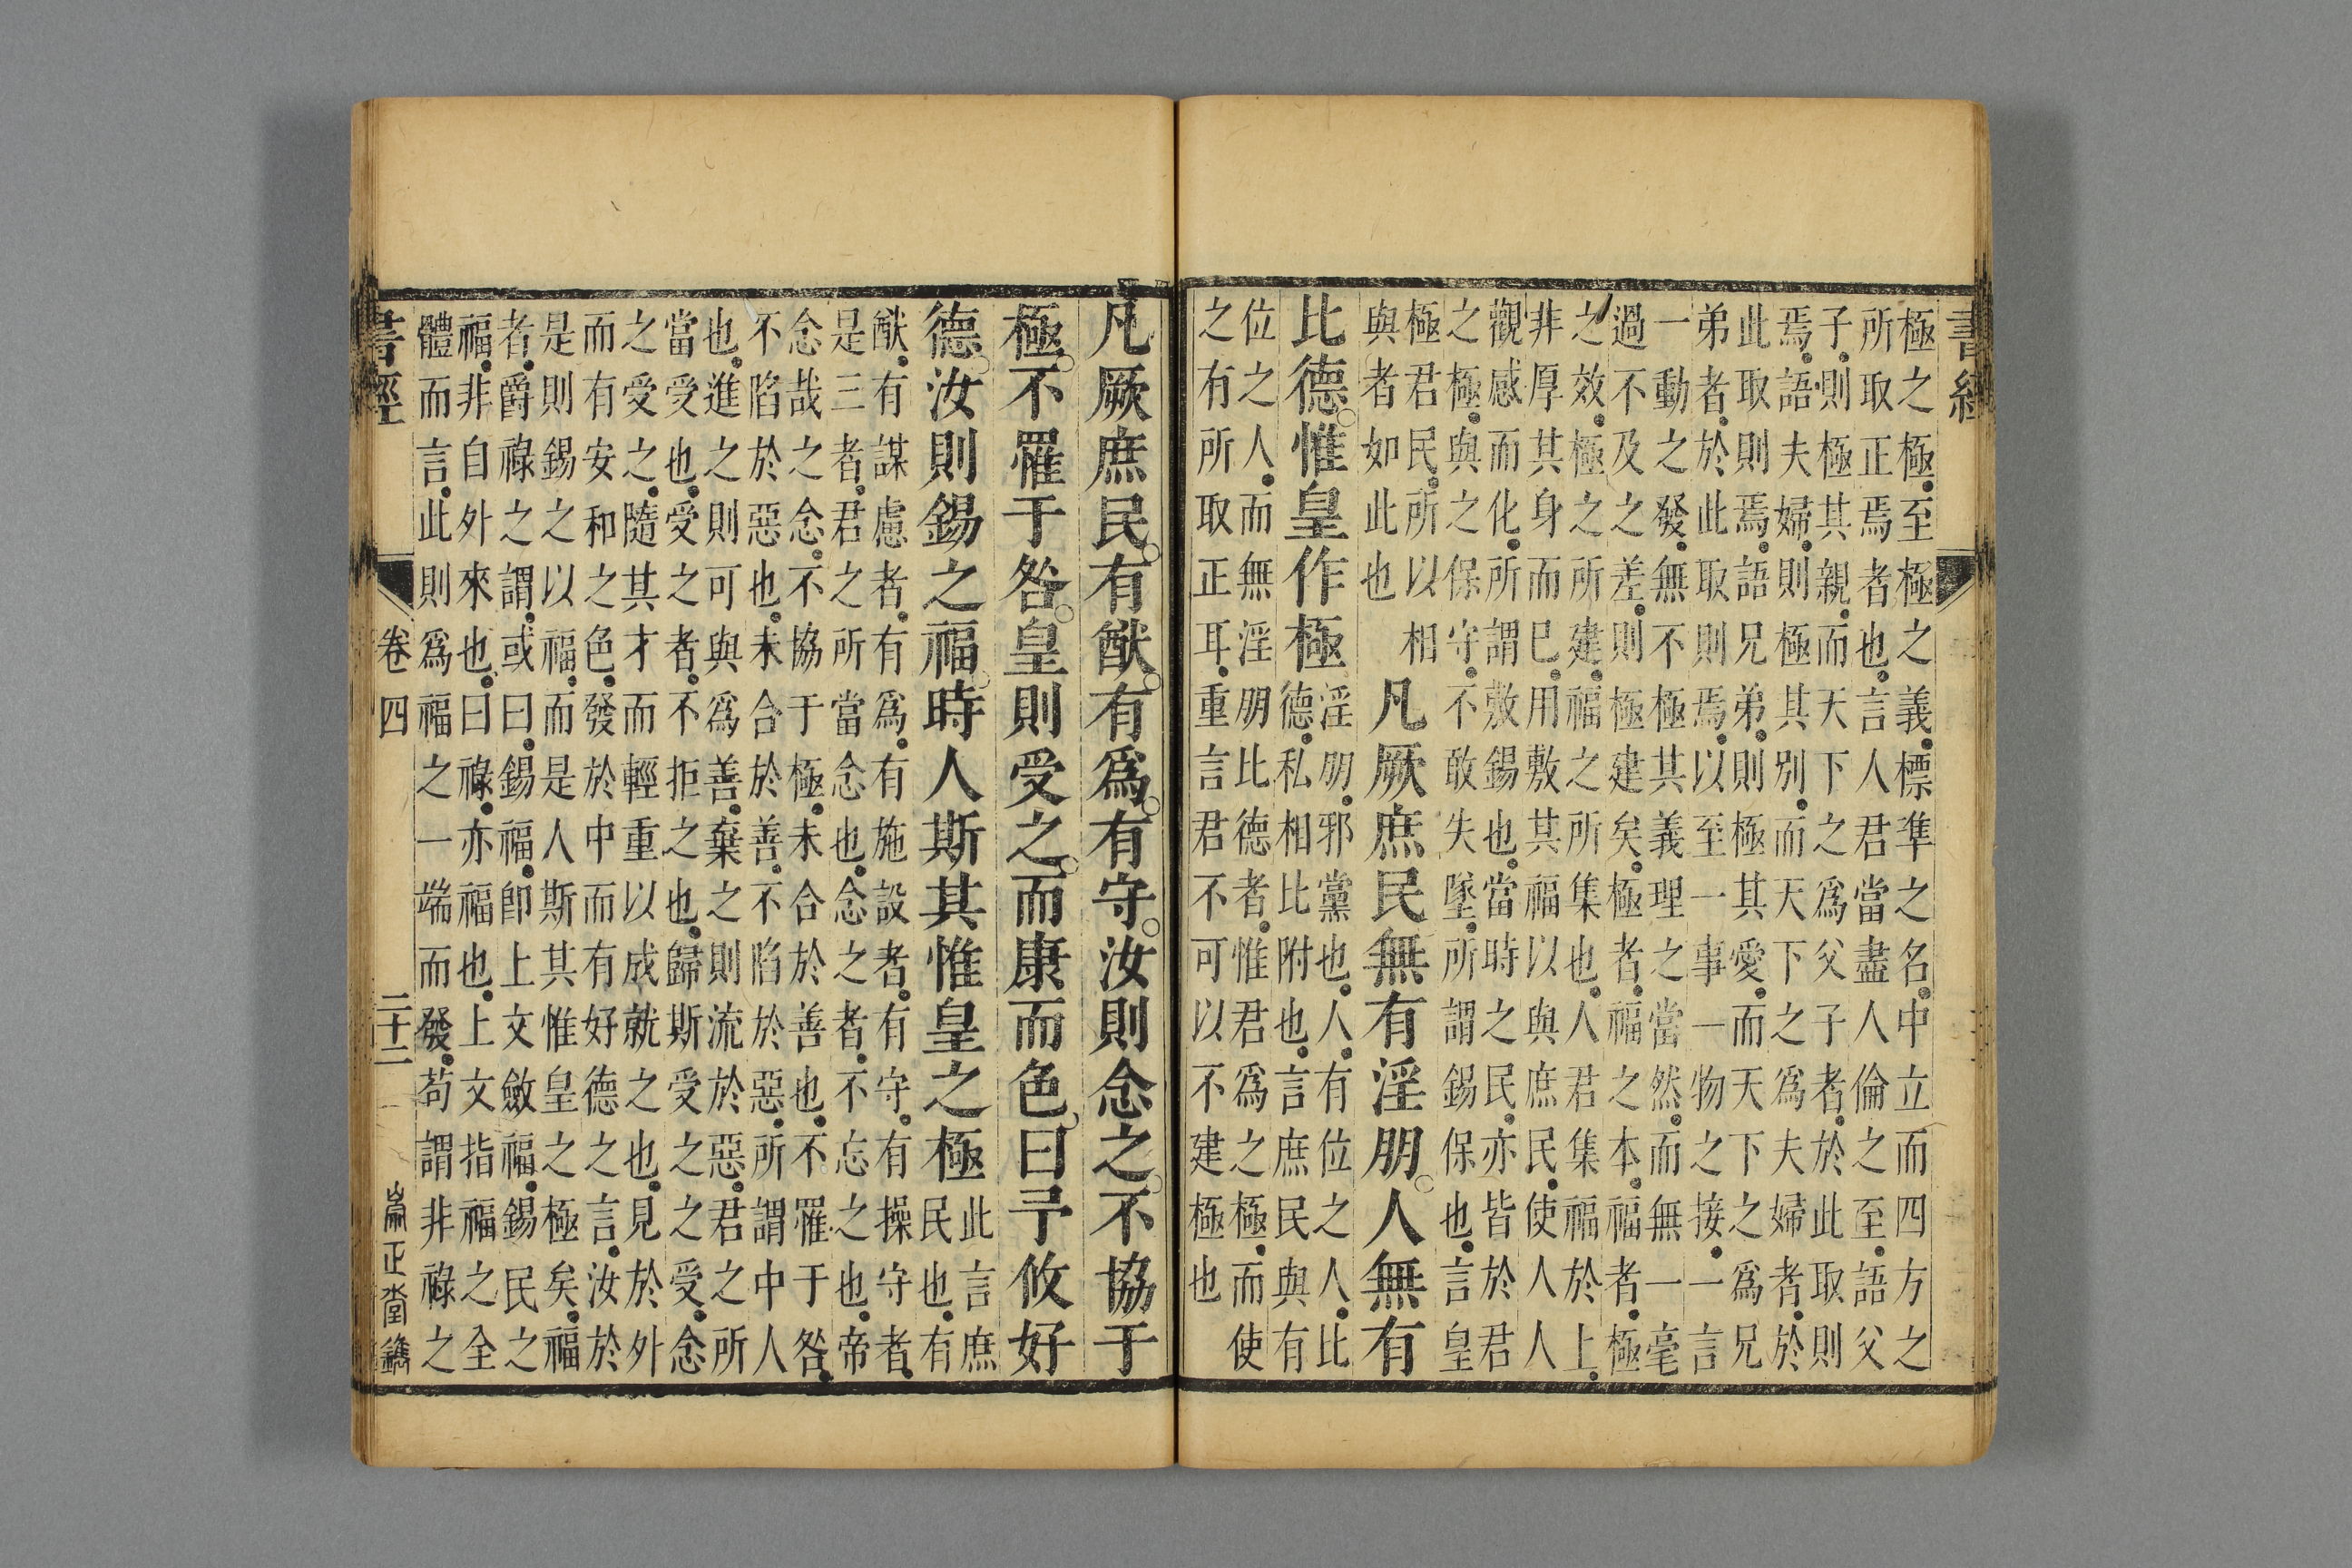 書經
極之極至極之義標準之名中立而四方之
所取正焉者也言人君當盡人倫之至語父
子則極其親而天下之爲父子者於此取則
焉語夫婦則極其別而天下之爲夫婦者於
此取則焉語兄弟則極其愛而天下之爲兄
弟者於此取則焉以至一事一物之接一言
一動之發無不極其義理之當然而無一毫
過不及之差則極建矣極者福之本福者極
之效極之所建福之所集也人君集福於上
非厚其身而已用敷其福以與庶民使人人
觀感而化所謂敷錫也當時之民亦皆於君
之極與之保守不敢失墜所謂錫保也言皇
極君民所以相
與者如此也
凡厥庶民無有淫朋人無有
比德惟皇作極
淫朋邪黨也人有位之人比
德私相比附也言庶民與有
位之人而無淫朋比德者惟君爲之極而使
之有所取正耳重言君不可以不建極也
凡厥庶民有猷有爲有守汝則念之不協于
極不罹于咎皇則受之而康而色曰予攸好
德汝則錫之福時人斯其惟皇之極
此言庶
民也有
猷有謀慮者有爲有施設者有守有操守者
是三者君之所當念也念之者不忘之也帝
念哉之念不協于極未合於善也不罹于咎
不陷於惡也未合於善不陷於惡所謂中人
也進之則可與爲善棄之則流於惡君之所
當受也受之者不拒之也歸斯受之之受念
之受之隨其才而輕重以成就之也見於外
而有安和之色發於中而有好德之言汝於
是則錫之以福而是人斯其惟皇之極矣福
者爵祿之謂或曰錫福卽上文斂福錫民之
福非自外來也曰祿亦福也上文指福之全
體而言此則爲福之一端而發苟謂非祿之
書經
卷四
二十二
崇正堂鐫